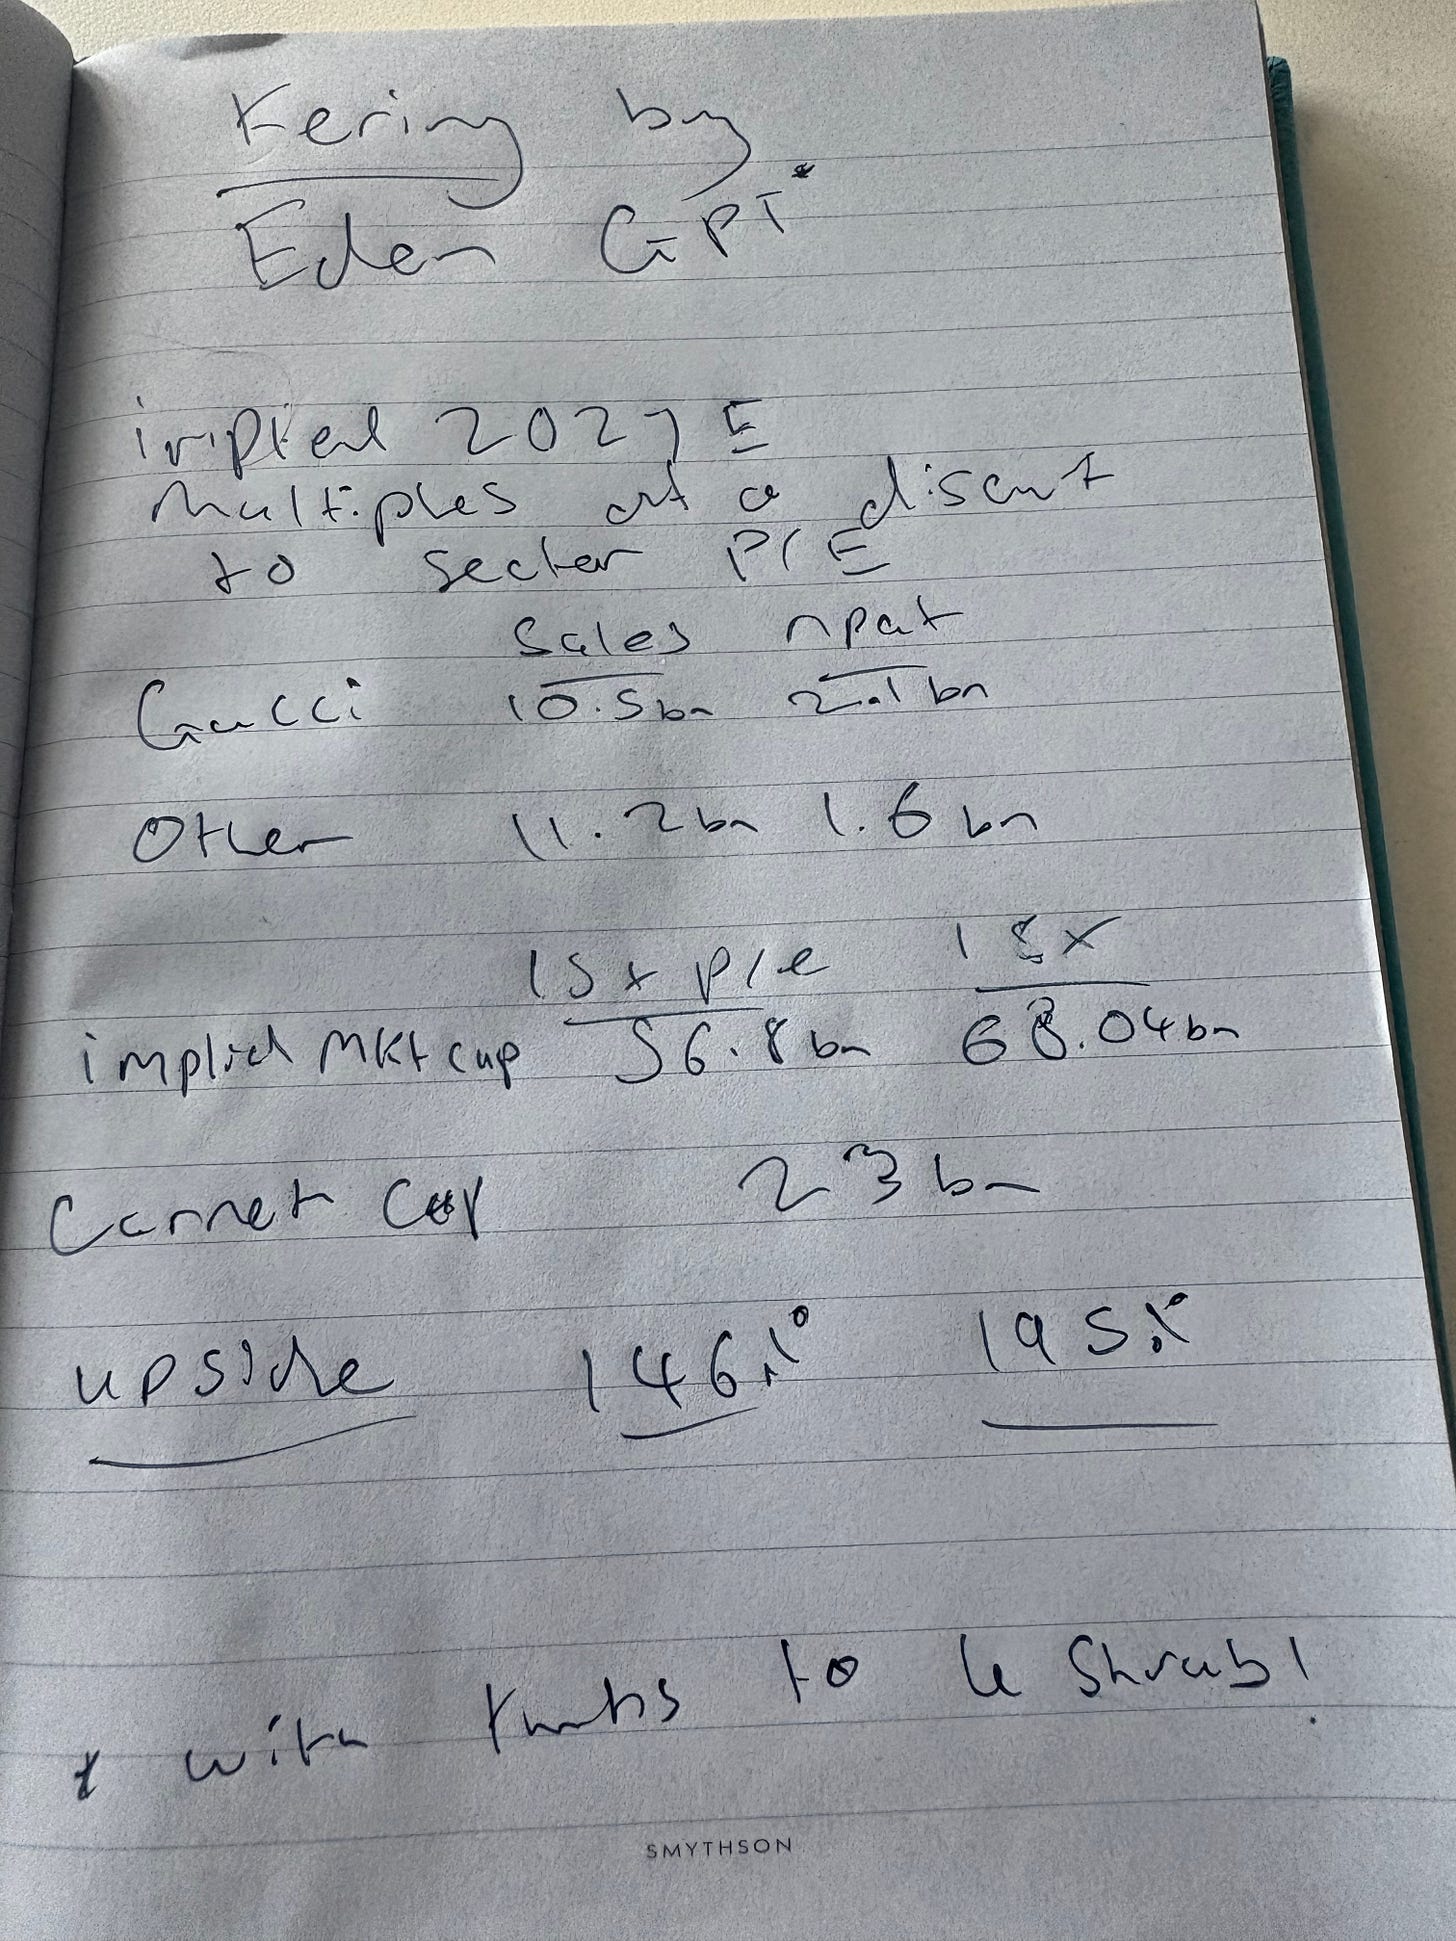 Kering by
Eden GPT*
implied 2027 E
multiples at a discount
to sector P/E
Sales npat
Gucci 10.5bn 2.1bn
Other 11.2bn 1.6bn
15x p/e 18x
implied Mkt cap 56.8bn 68.04bn
Current Cap 23bn
upside 146% 195%
* with thanks to le Shrub!
SMYTHSON